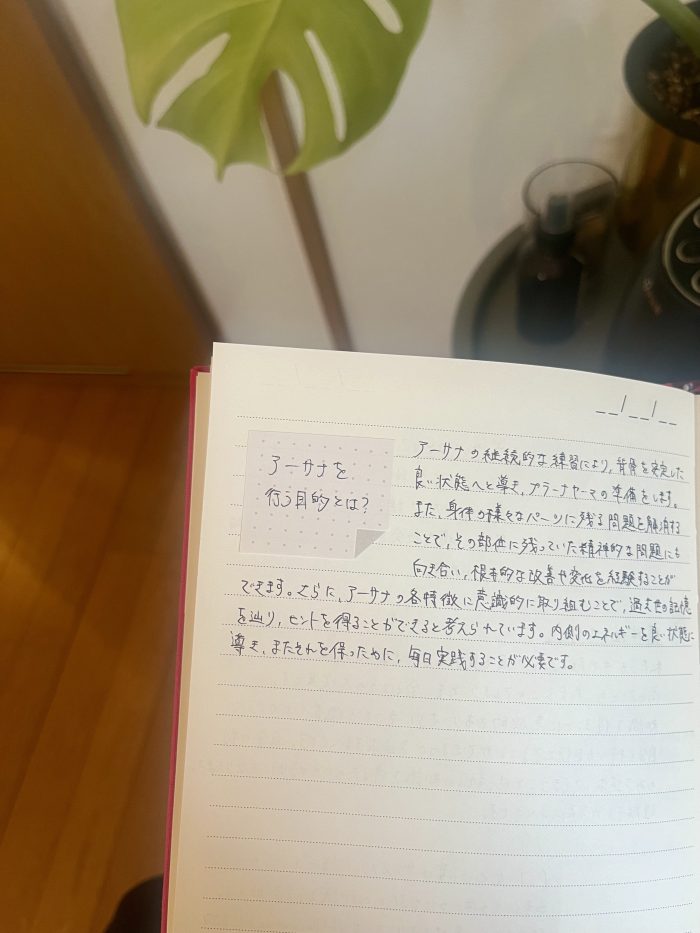 __/__/__
アーサナを
行う目的とは?
アーサナの継続的な練習により,背骨を安定した
良い状態へと導き,プラーナヤーマの準備をします。
また,身体の様々なパーツに残る問題を解消する
ことで,その部位に残っていた精神的な問題にも
向き合い,根本的な改善や変化を経験することが
できます。さらに,アーサナの各特徴に意識的に取り組むことで,過去世の記憶
を辿り,ヒントを得ることができると考えられています。内側のエネルギーを良い状態に
導き,またそれを保つために,毎日実践することが必要です。